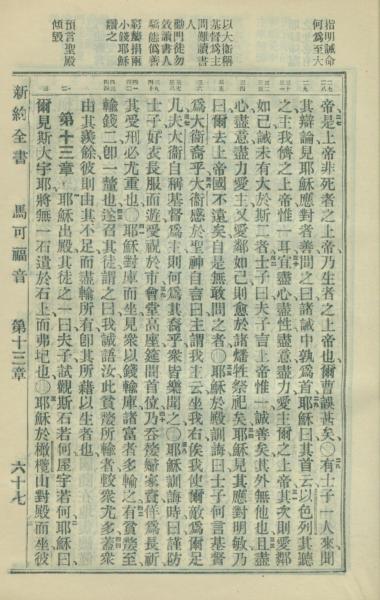 指明誡命
何爲至大
以大衛稱
基督爲主
問難讀書
人
勸門徒勿
效讀書人
驕傲僞善
窮嫠捐兩
小錢耶穌
讚之
預言聖殿
傾毀
帝是上帝非死者之上帝乃生者之上帝也爾曹誤甚矣○有士子一人來聞
其辯論見耶穌應對者善問之曰諸誡中孰爲首耶穌曰其首云以色列其聽
之主我儕之上帝惟一耳宜盡心盡性盡意盡力愛主爾之上帝其次則愛鄰
如己誡未有大於斯二者士子曰夫子言上帝惟一誠善矣其外無他也且盡
心盡意盡力愛主又愛鄰如己則愈於諸燔牲祭祀矣耶穌見其應對明敏乃
曰爾去上帝國不遠矣自是無敢問之者○耶穌於殿訓誨曰士子何言基督
爲大衛裔乎大衛感於聖神自言曰主謂我主云坐我右俟我使爾敵爲爾足
几夫大衛自稱基督爲主則何爲其裔乎衆皆樂聞之○耶穌訓誨時曰謹防
士子好衣長服而遊愛祝於市會堂高座筵間首位乃吞嫠婦家貲佯爲長祈
其受刑必尤重也○耶穌對庫而坐見衆以錢輸庫諸富者多輸之有貧嫠至
輸錢二卽一釐也遂召其徒謂之曰我誠語汝此貧嫠所輸者較衆尤多蓋衆
由其羨餘彼則由其不足而盡輸所有卽其所藉以生者也
第十三章 耶穌出殿其徒之一曰夫子試觀斯石若何屋宇若何耶穌曰
爾見斯大宇耶將無一石遺於石上而弗圮也○耶穌於橄欖山對殿而坐彼
新約全書 馬可福音 第十三章 六十七